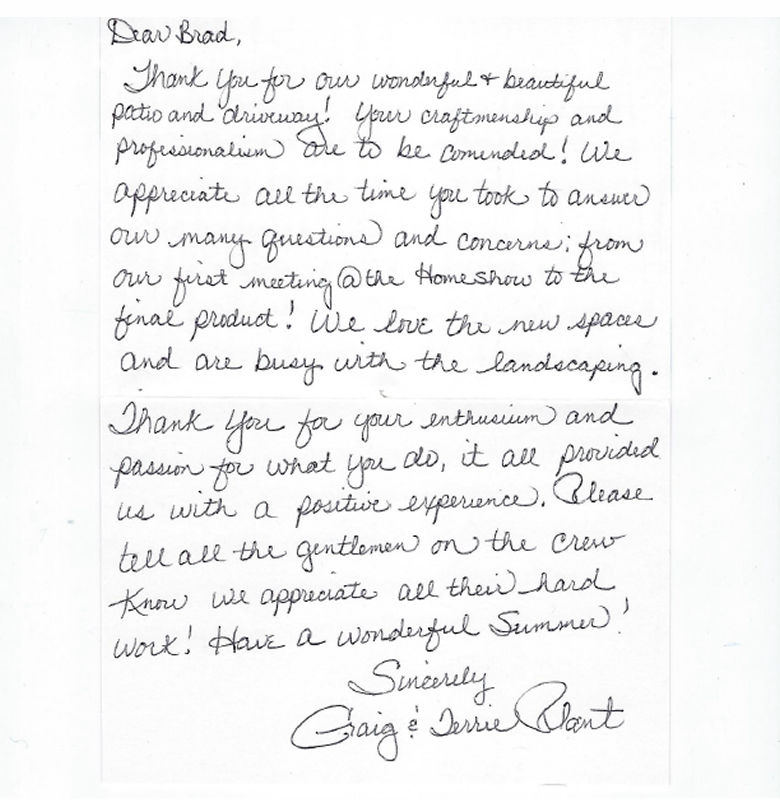 Dear Brad,
Thank You for our wonderful & beautiful
patio and driveway! Your craftmenship and
professionalism are to be comended! We
appreciate all the time you took to answer
our many questions and concerns; from
our first meeting @ the Homeshow to the
final product! We love the new spaces
and are busy with the landscaping.
Thank You for your enthusium and
passion for what you do, it all provided
us with a positive experience. Please
tell all the gentlemen on the crew
Know we appreciate all their hard
work! Have a wonderful Summer!
Sincerely
Craig & Terrie Plant